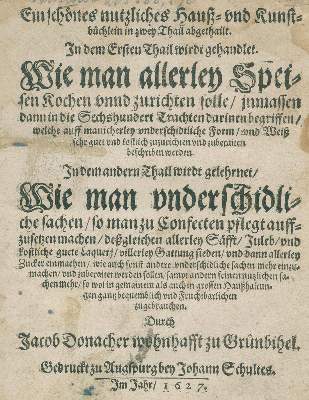 Ein schönes nutzliches Hauß- vnd Kunst-
büchlein in zwey Thail abgethailt.
In dem Ersten Thail wirdt gehandlet.
Wie man allerley Spei-
sen Kochen vnnd zurichten solle / inmassen
dann in die Sechshundert Trachten darinen begriffen /
welche auff manicherley vnderschidtliche Form / vnd Weiß
sehr guet vnd köstlich zuzurichten vnd zuberaiten
beschriben werden.
In dem andern Thail wirdt gelehrnet /
Wie man vnderschidli-
che sachen / so man zu Confecten pflegt auff-
zusetzen machen / deßgleichen allerley Säfft / Juleb / vnd
köstliche guete Laquerj / villerley Gattung sieden / vnd dann allerley
Zucker einmachen / wie auch sonst andere vnderschidliche sachen mehr einzu-
machen / vnd zuberaiten werden sollen / sampt andern feinen nuzlichen sa-
chen mehr / so wol in gemainem als auch in grossen Haußhaltun-
gen gantz bequemblich vnd fruchtbarlichen
zugebrauchen.
Durch
Jacob Donacher wohnhafft zu Grünbihel.
Gedruckt zu Augspurg bey Johann Schultes.
Im Jahr / 1627.